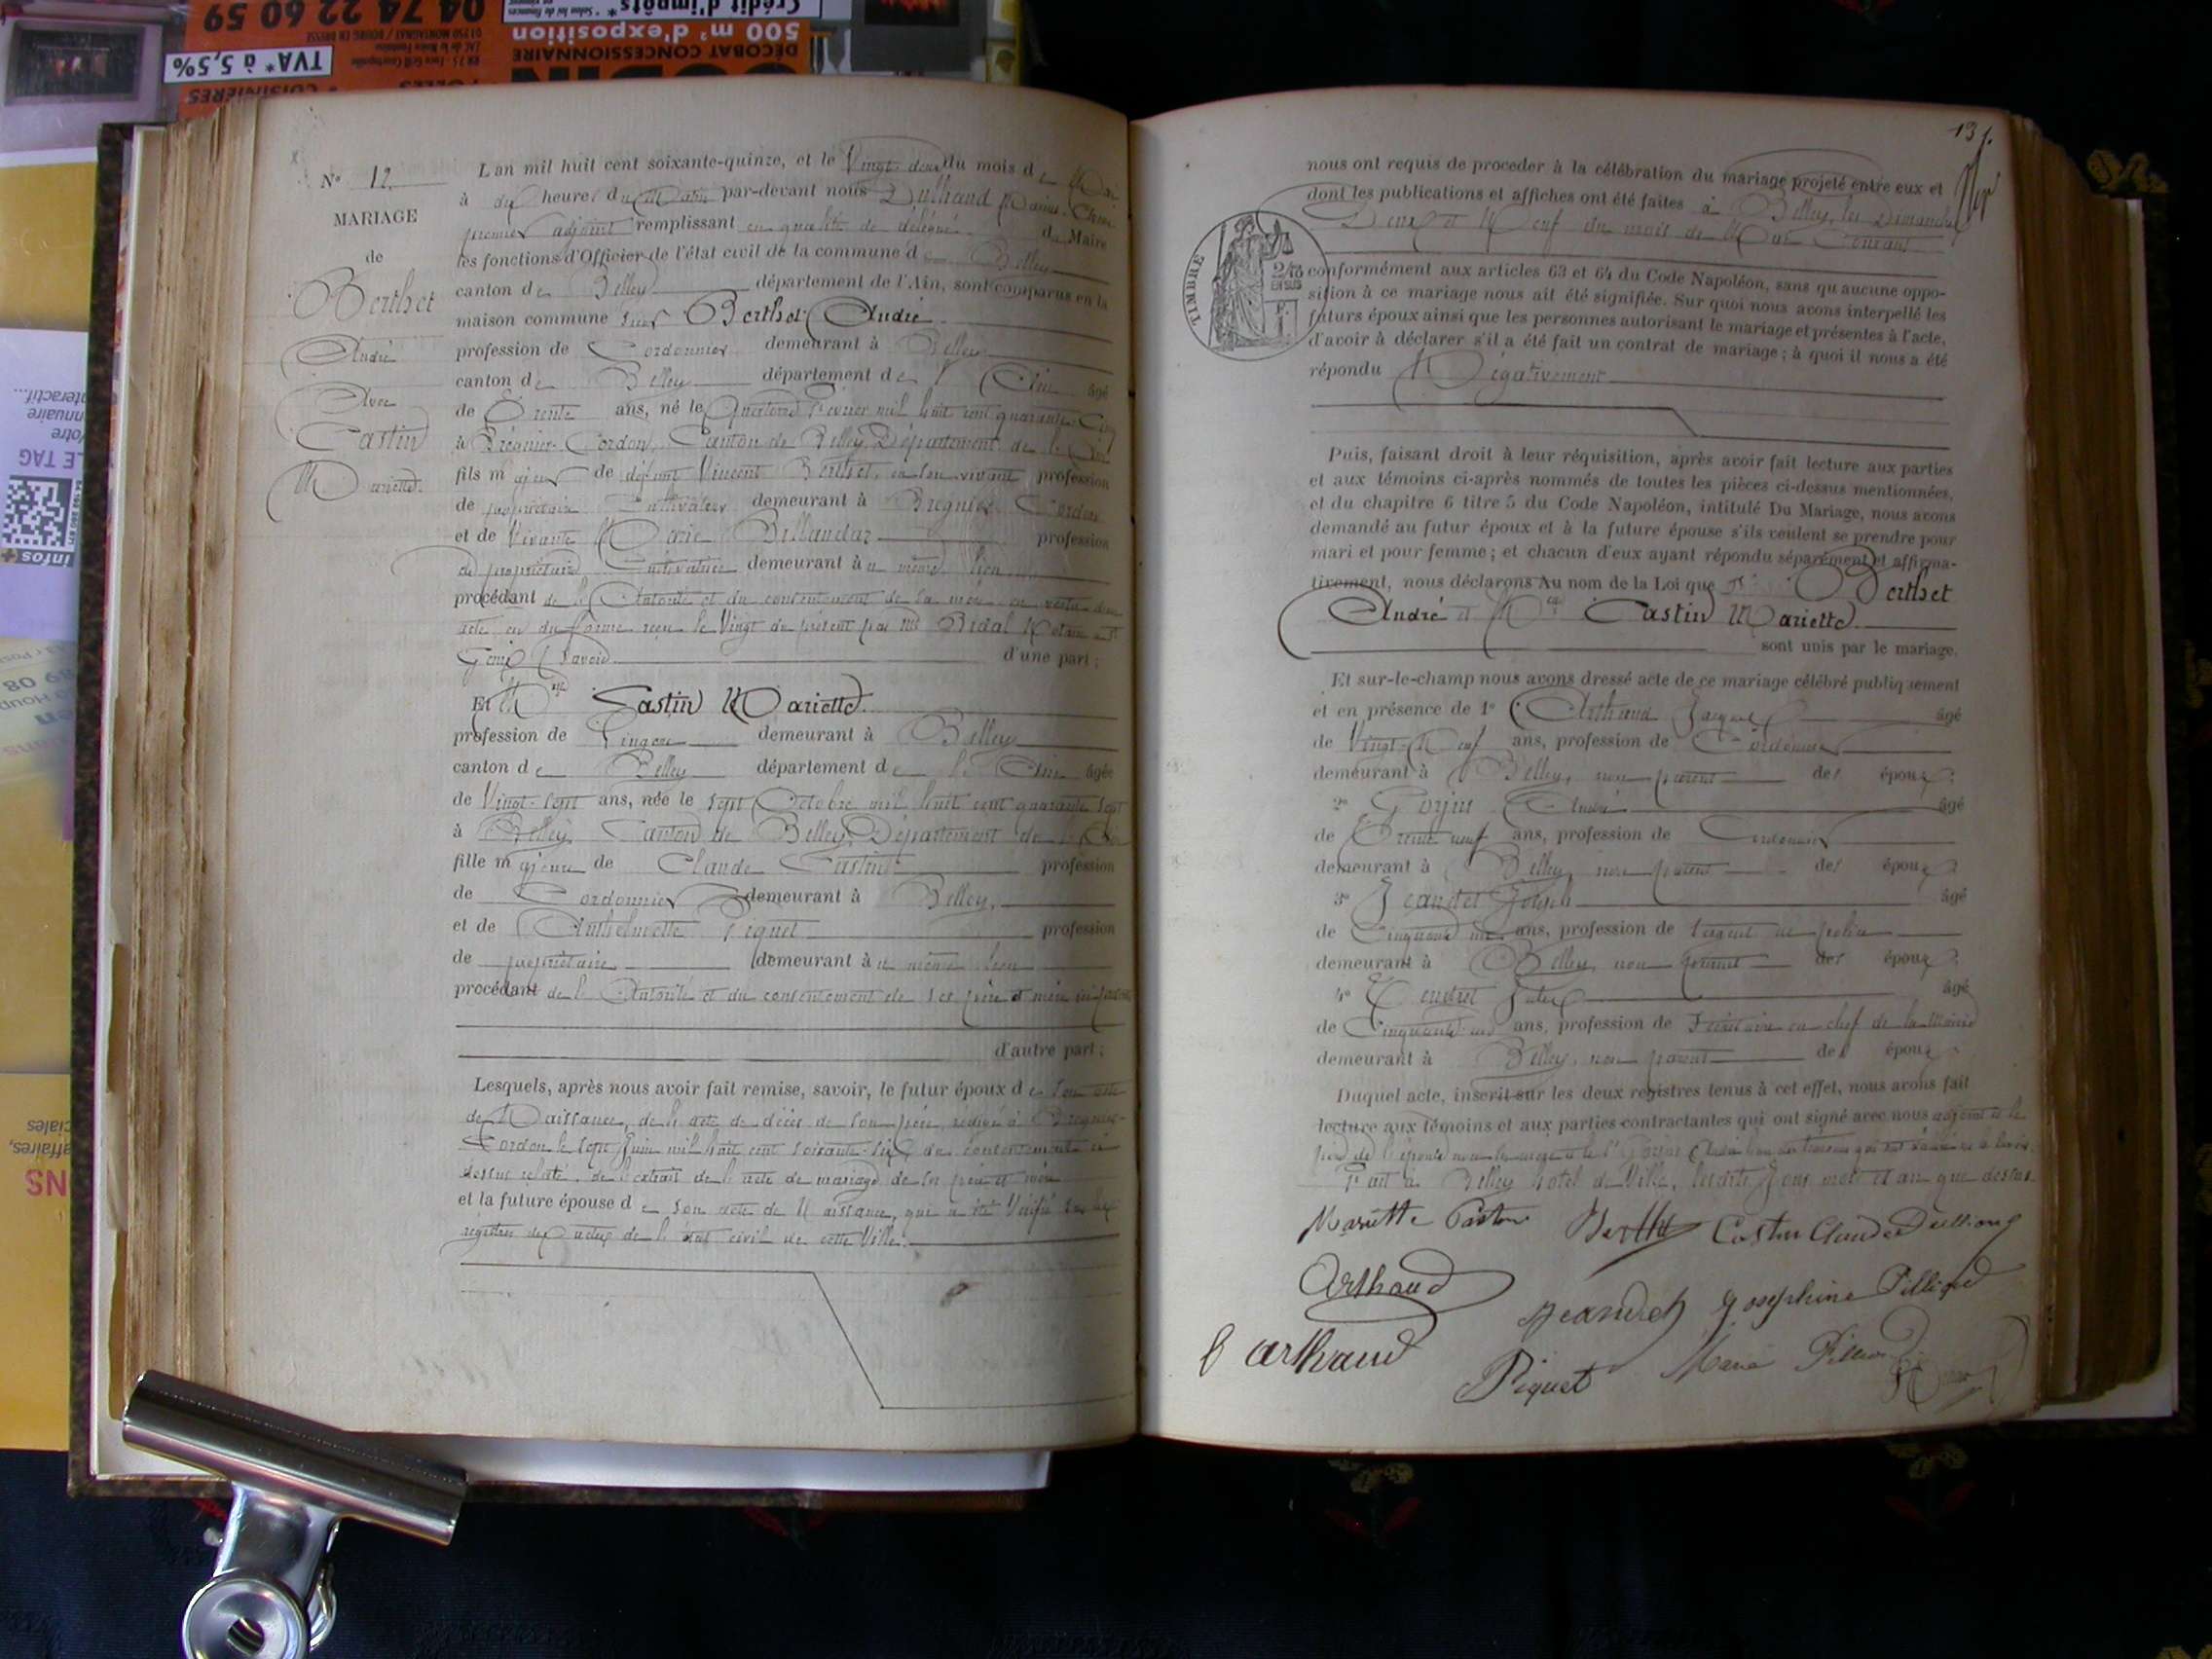 N° 12.
MARIAGE
de
Berthet
André
Avec
Castin
Mariette.
L'an mil huit cent soixante-quinze, et le Vingt deux du mois de Mai
à dix heures du Matin par-devant nous
premier adjoint remplissant en qualité de délégué du Maire
les fonctions d'Officier de l'état civil de la commune de Belley
canton de Belley département de l'Ain, sont comparus en la
maison commune sieur Berthet André
profession de Cordonnier demeurant à Belley
canton de Belley département de l'Ain âgé
de Trente ans, né le Quatorze Février mil huit cent quarante-Cinq
à Brégnier-Cordon, Canton de Belley, Département de l'Ain
fils majeur de défunt Vincent Berthet, en son vivant profession
de propriétaire Cultivateur demeurant à Brégnier Cordon
et de Vivante Marie Billandaz profession
de propriétaire Cultivatrice demeurant au même lieu
procédant de l'Autorité et du consentement de sa mère en vertu d'un
acte en due forme reçu le Vingt du présent par Me Bidal Notaire à St
Genix (Savoie) d'une part ;
Et Melle Castin Mariette.
profession de Lingère demeurant à Belley
canton de Belley département de l'Ain âgée
de Vingt-Sept ans, née le Sept Octobre mil huit cent quarante sept
à Belley, Canton de Belley, Département de l'Ain
fille majeure de Claude Castin profession
de Cordonnier demeurant à Belley,
et de Anthelmette Piquet profession
de propriétaire demeurant au même lieu
procédant de l'Autorité et du consentement de ses père et mère ici présents
d'autre part ;
Lesquels, après nous avoir fait remise, savoir, le futur époux de son acte
de Naissance, de l'acte de décès de son père, rédigé à Brégnier-
Cordon le sept Juin mil huit cent soixante-six, du consentement ci
dessus relaté, de l'extrait de l'acte de mariage de ses père et mère
et la future épouse de son acte de Naissance, qui a été Vérifié sur les
registres des actes de l'état civil de cette Ville.
131.
nous ont requis de procéder à la célébration du mariage projeté entre eux et
dont les publications et affiches ont été faites à Belley, les Dimanches
Deux et Neuf du mois de Mai Courant
conformément aux articles 63 et 64 du Code Napoléon, sans qu'aucune oppo-
sition à ce mariage nous ait été signifiée. Sur quoi nous avons interpellé les
futurs époux ainsi que les personnes autorisant le mariage et présentes à l'acte,
d'avoir à déclarer s'il a été fait un contrat de mariage ; à quoi il nous a été
répondu Négativement
Puis, faisant droit à leur réquisition, après avoir fait lecture aux parties
et aux témoins ci-après nommés de toutes les pièces ci-dessus mentionnées,
et du chapitre 6 titre 5 du Code Napoléon, intitulé Du Mariage, nous avons
demandé au futur époux et à la future épouse s'ils veulent se prendre pour
mari et pour femme ; et chacun d'eux ayant répondu séparément et affirma-
tivement, nous déclarons Au nom de la Loi que Sr Berthet
André et Melle Castin Mariette.
sont unis par le mariage.
Et sur-le-champ nous avons dressé acte de ce mariage célébré publiquement
et en présence de 1° Arthaud Jacques âgé
de Vingt-Neuf ans, profession de Cordonnier
demeurant à Belley, non parent des époux ;
2° Gorjus André âgé
de Trente neuf ans, profession de Cordonnier
demeurant à Belley, non parent des époux ;
3° Jeandet Joseph âgé
de Cinquante ans, profession de sergent de police
demeurant à Belley, non parent des époux ;
4° Tendret Jules âgé
de Cinquante ans, profession de Secrétaire en chef de la Mairie
demeurant à Belley, non parent des époux.
Duquel acte, inscrit sur les deux registres tenus à cet effet, nous avons fait
lecture aux témoins et aux parties contractantes qui ont signé avec nous adjoint et le
père de l'épouse
Fait à Belley hôtel de Ville, lesdits Jour mois et an que dessus.
Mariette Castin Berthet Castin Claude
Arthaud Jeandet Josephine Pilliond
Arthaud Piquet Marie
TIMBRE
TVA* à 5,5%
500 m² d'exposition
DÉCOBAT CONCESSIONNAIRE
Crédit d'impôts*
04 74 22 60 59
CUISINIÈRES
LE TAG
infos+